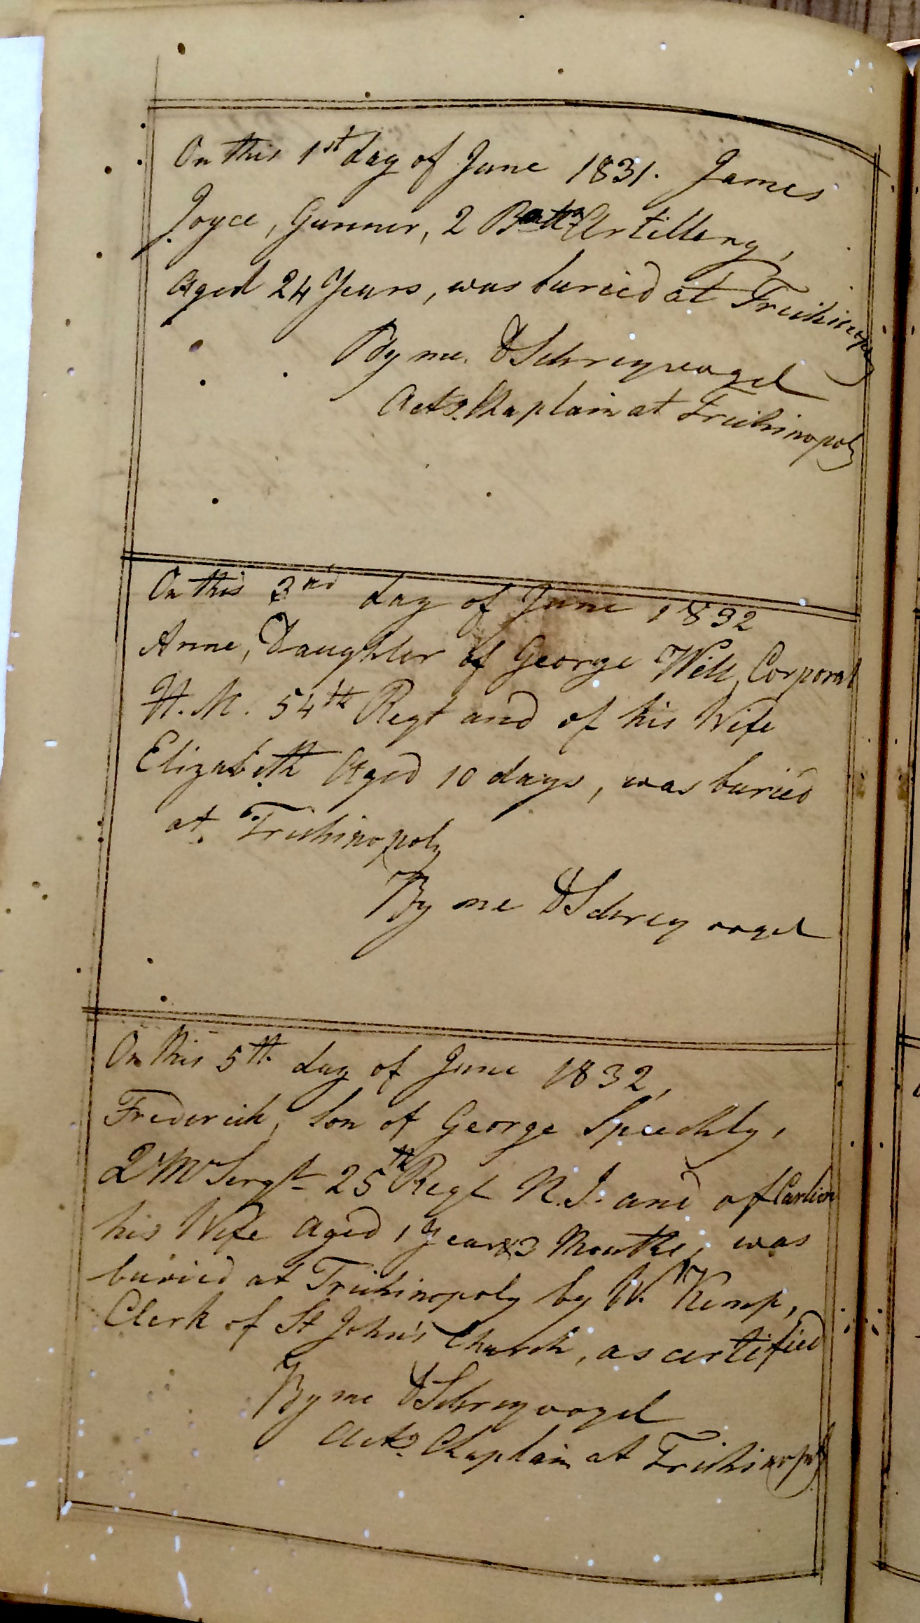 On this 1st day of June 1831. James
Joyce, Gunner, 2 Battn Artillery,
Aged 24 Years, was buried at Trichinopoly
By me. D Schreyvogel
Actg. Chaplain at Trichinopoly
On this 3rd day of June 1832
Anne, Daughter of George Will, Corporal
H. M. 54th Regt and of his Wife
Elizabeth Aged 10 days, was buried
at Trichinopoly
By me D Schreyvogel
On this 5th day of June 1832,
Frederick, Son of George Speechly,
Qr Mr Sergt 25th Regt N.I. and of
his Wife Aged 1 Year & 3 Months, was
buried at Trichinopoly by W. Kemp,
Clerk of St John's Church, as certified
By me D Schreyvogel
Actg. Chaplain at Trichinopoly